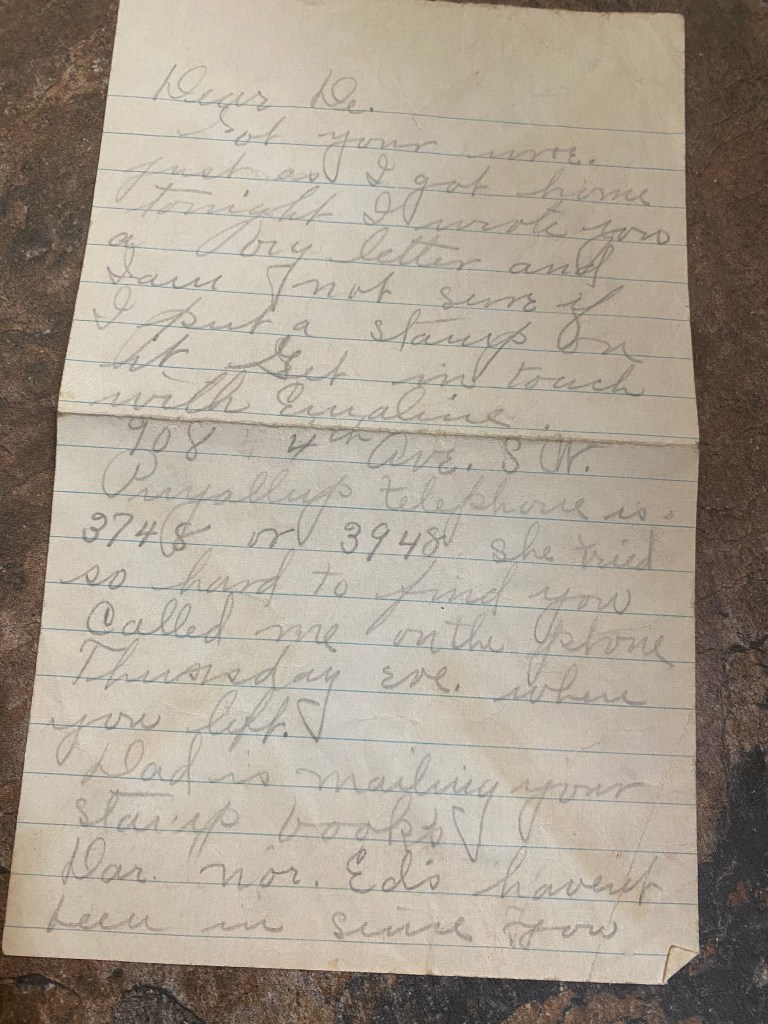 Dear De.
Got your
just as I got home
tonight I wrote you
a big letter and
I am not sure if
I put a stamp on
it Get in touch
with Emaline.
908 4th Ave. S W.
Puyallup telephone is.
3748 or 3948 she tried
so hard to find you
Called me on the phone
Thursday eve. when
you left.
Dad is mailing your
stamp books
Dar. nor. Ed's havent
been in since you